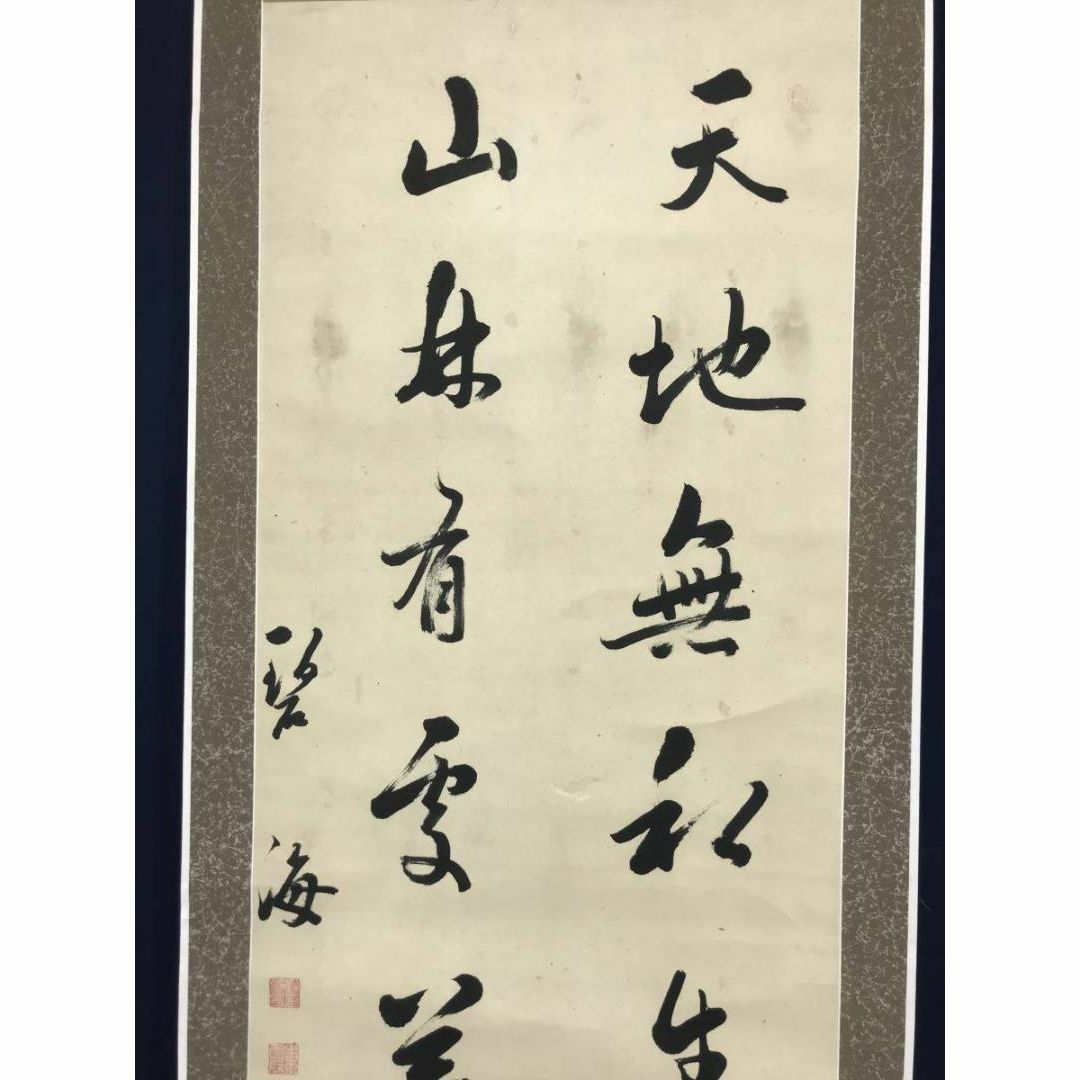 天地無私生
山林有處
碧海